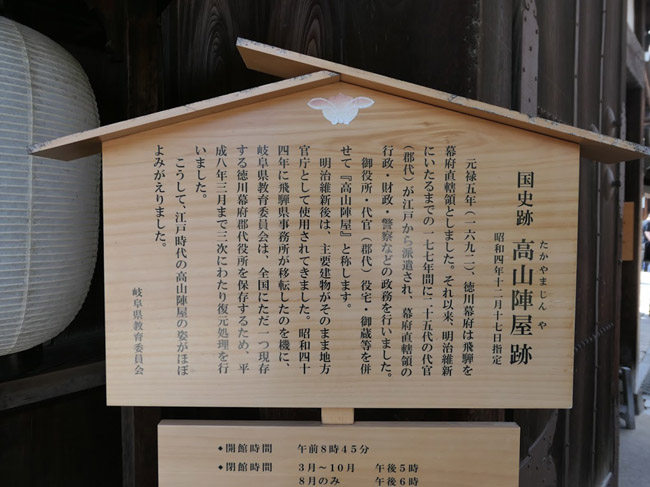 国史跡 高山陣屋跡
たかやまじんや
昭和四年十二月十七日指定
元禄五年(一六九二)、徳川幕府は飛騨を
幕府直轄領としました。それ以来、明治維新
にいたるまでの一七七年間に二十五代の代官
(郡代)が江戸から派遣され、幕府直轄領の
行政・財政・警察などの政務を行いました。
御役所・代官(郡代)役宅・御蔵等を併
せて『高山陣屋』と称します。
明治維新後は、主要建物がそのまま地方
官庁として使用されてきました。昭和四十
四年に飛騨県事務所が移転したのを機に、
岐阜県教育委員会は、全国にただ一つ現存
する徳川幕府郡代役所を保存するため、平
成八年三月まで三次にわたり復元処理を行
いました。
こうして、江戸時代の高山陣屋の姿がほぼ
よみがえりました。
岐阜県教育委員会
◆開館時間 午前8時45分
◆閉館時間 3月〜10月 午後5時
8月のみ 午後6時